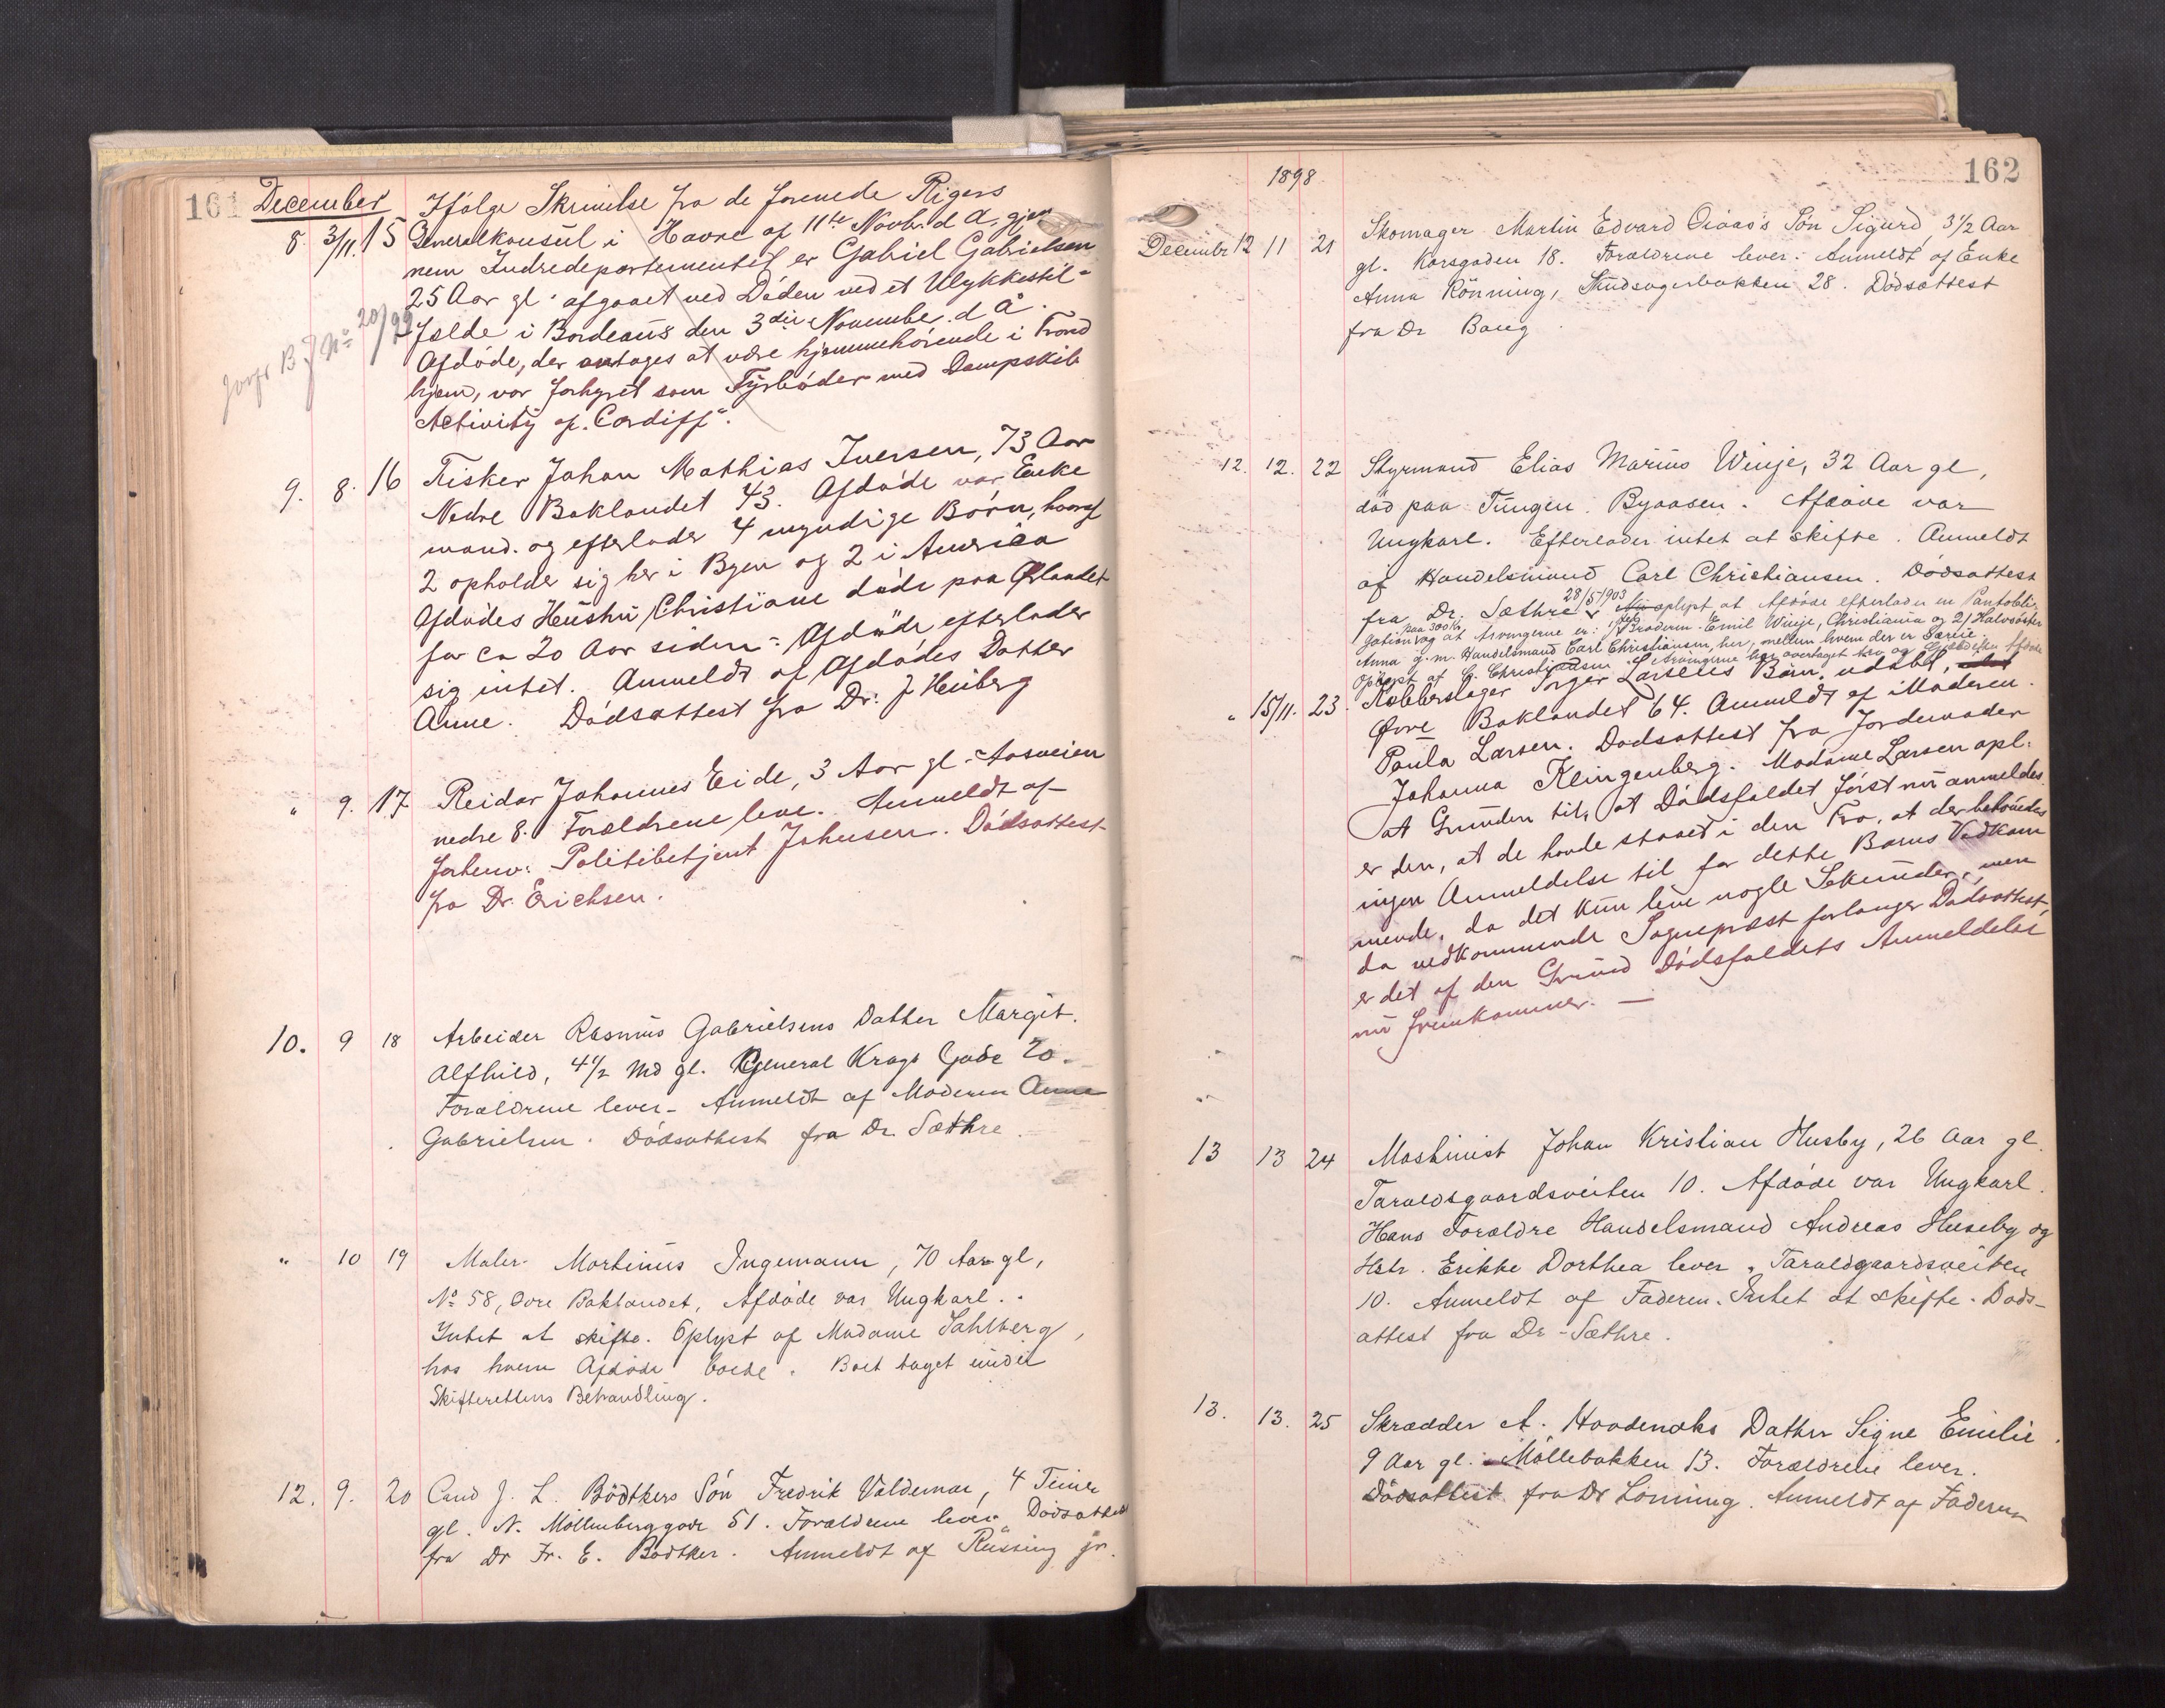 161
December
Ifølge Skrivelse fra de forenede Rigers
8. 3/11. 15 Generalkonsul i Havre af 11te Novbr. d A. gjen
nem Indredepartementet er Gabriel Gabrielsen
25 Aar gl. afgaaet ved Døden ved et Ulykkestil-
fælde i Bordeaux den 3die November d A.
Afdøde, der antages at være hjemmehørende i Trond
hjem, var forhyret som Fyrbøder med Dampskib
Activity af Cardiff".
Jvfr B J No 20/99
9. 8. 16 Fisker Johan Mathias Iversen, 73 Aar
Nedre Baklandet 43. Afdøde var Enke
mand og efterlader 4 myndige Børn, hvoraf
2 opholder sig her i Byen og 2 i America
Afdødes Hustru Christiane døde paa Ørlandet
for ca 20 Aar siden - Afdøde efterlader
sig intet. Anmeldt af Afdødes Datter
Anne. Dødsattest fra Dr. J Heiberg
" 9. 17 Reidar Johannes Eide, 3 Aar gl. Aasveien
nedre 8. Forældrene leve. Anmeldt af
forhenv. Politibetjent Johnsen. Dødsattest
fra Dr. Erichsen.
10. 9 18 Arbeider Rasmus Gabrielsens Datter Margit
Alfhild, 4 1/2 Md gl. General Krags Gade 20.
Forældrene lever - Anmeldt af Moderen Anne
Gabrielsen. Dødsattest fra Dr. Sæthre.
" 10 19 Maler Martinus Ingemann, 70 Aar gl,
No 58, Øvre Baklandet, Afdøde var Ungkarl.
Intet at skifte. Oplyst af Madame Sahlberg,
hos hvem Afdøde boede. Boet taget under
Skifterettens Behandling.
12. 9. 20 Cand J. L. Bödtkers Sön Fredrik Valdemar, 4 Timer
gl. N. Möllenberggade 51. Forældrene lever Dödsattest
fra Dr Fr. E. Bödtker. Anmeldt af Rüssing jr.
1898
162
Decembr 12 11 21 Skomager Martin Edvard Sön Sigurd 3 1/2 Aar
gl. Korsgaden 18. Forældrene lever. Anmeldt af Enke
Anna Rönning, Studsagerbakken 28. Dödsattest
fra Dr Bang.
12. 12. 22 Styrmand Elias Marius Winje, 32 Aar gl,
död paa Tungen, Byaasen. Afdöde var
Ungkarl. Efterlader intet at skifte. Anmeldt
af Handelsmand Carl Christiansen. Dödsattest
fra Dr. Sæthre 28/5/903 oplyst at Afdöde efterlader en Pantobli-
gation paa 300 Kr. og at Arvingerne er: 1) Broderen Emil Winje, Christiania og 2) Halvsöster
Anna g. m. Handelsmand Carl Christiansen, her, mellem hvem der er Særeie.
Oplyst af C. Christiansen. Arvingerne har overtaget Arv og Gjæld efter Afdöde
" 15/11. 23. Kobberslager Torger Larsens Barn, udøbt,
Øvre Baklandet 64. Anmeldt af Moderen
Paula Larsen. Dødsattest fra Jordemoder
Johanna Klingenberg. Madame Larsen opl.
at Grunden til, at Dødsfaldet først nu anmeldes
er den, at de havde staaet i den Tro, at der behøvedes
ingen Anmeldelse til for dette Barns Vedkom
mende, da det kun leve nogle Sekunder, men
da vedkommende Sognepræst forlanger Dødsattest,
er det af den Grund Dødsfaldets Anmeldelse
nu fremkommer. —
13 13 24 Maskinist Johan Kristian Husby, 26 Aar gl.
Taraldsgaardsveiten 10. Afdøde var Ungkarl.
Hans Forældre Handelsmand Andreas Huseby og
Hstr. Erikke Dorthea lever, Taraldsgaardsveiten
10. Anmeldt af Faderen. Intet at skifte. Døds-
attest fra Dr. Sæthre.
13. 13. 25 Skrædder A. Datter Signe Emilie
9 Aar gl. Möllebakken 13. Forældrene lever.
Dödsattest fra Dr Lönning. Anmeldt af Faderen